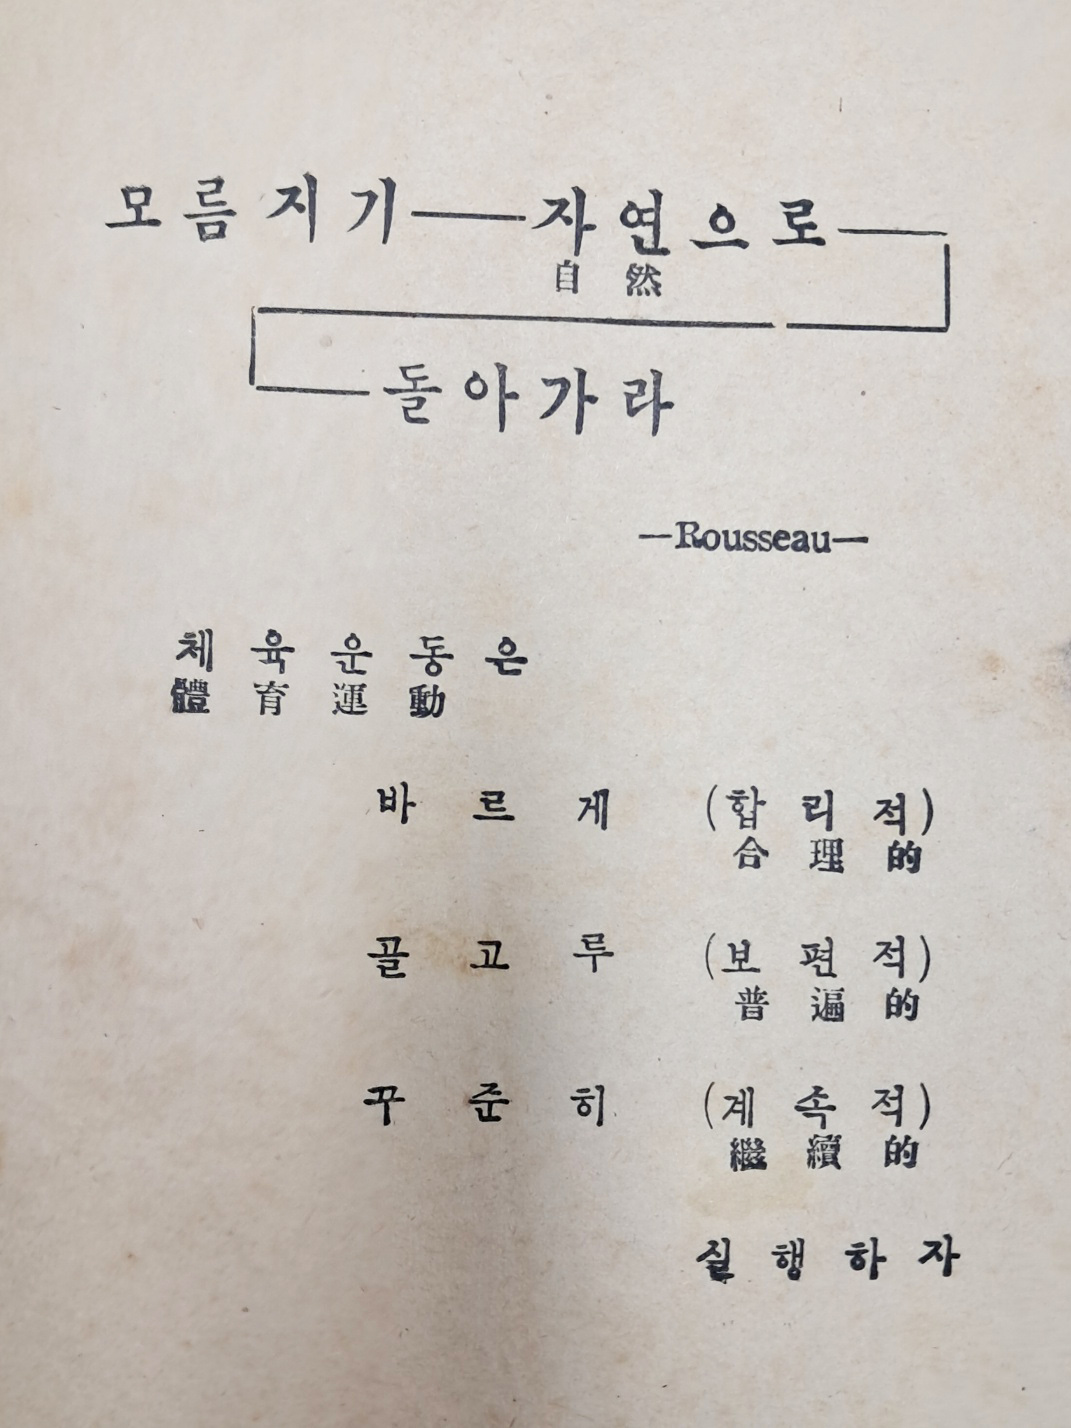 모름지기——자연으로——
自然
——돌아가라
—Rousseau—
체육운동은
體育運動
바르게 (합리적)
合理的
골고루 (보편적)
普遍的
꾸준히 (계속적)
繼續的
실행하자